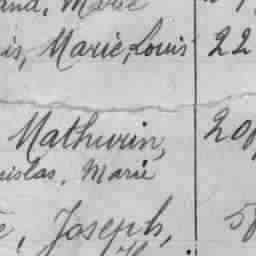 Marie
is, Marie, Louis 22
Mathurin, 20
islas, Marie
, Joseph, 5